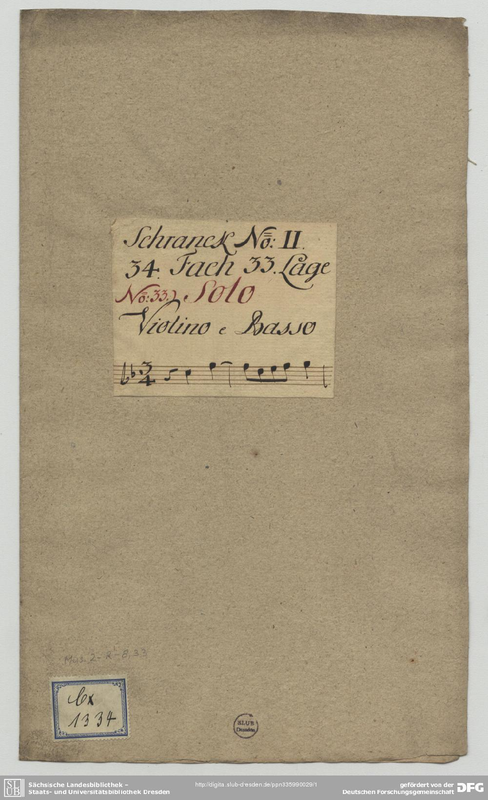 Schranck No: II.
34. Fach 33. Lage
No: 33.) Solo
Violino e Basso
3
4
Mus. 2-R-8,33
Cx
1334
SLUB
Dresden
SLUB
Sächsische Landesbibliothek –
Staats- und Universitätsbibliothek Dresden
http://digital.slub-dresden.de/ppn335990029/1
gefördert von der
Deutschen Forschungsgemeinschaft
DFG